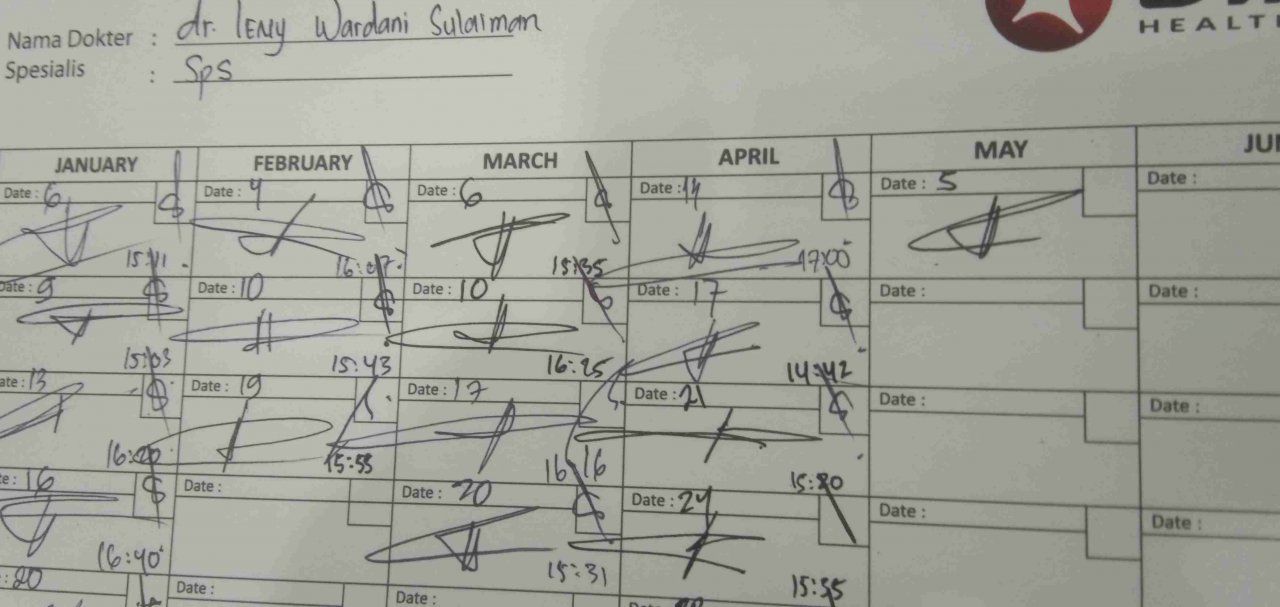 Nama Dokter : dr. Leny Wardani Sulaiman
Spesialis : Sps
HEALT
JANUARY FEBRUARY MARCH APRIL MAY JU
Date : 6 Date : 4 Date : 6 Date : 14 Date : 5 Date :
15:11 16:07 15:35 17:00
Date : 9 Date : 10 Date : 10 Date : 17 Date : Date :
15:03 15:43 16:25 14:42
ate : 13 Date : 19 Date : 17 Date : 21 Date : Date :
16:20 15:55 16:16 15:20
e : 16 Date : Date : 20 Date : 24 Date : Date :
16:40 15:31 15:35
: 20 Date : Date :